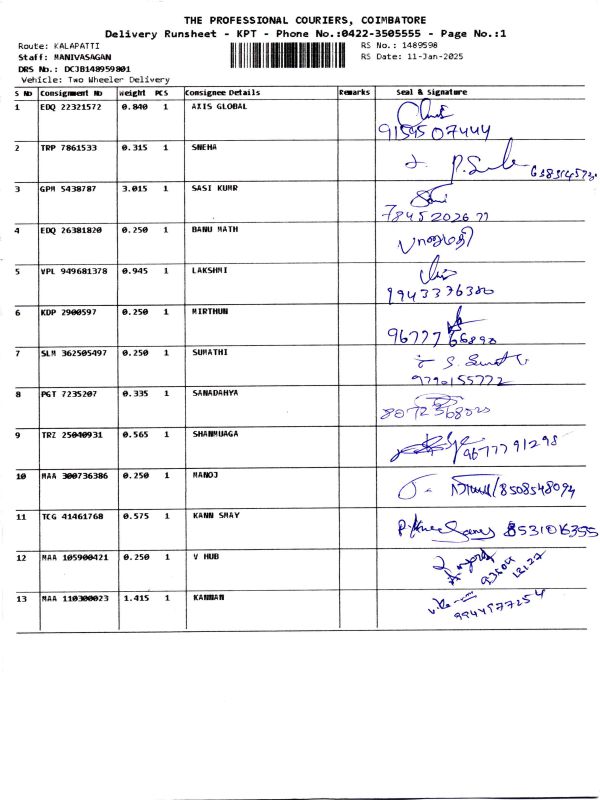 THE PROFESSIONAL COURIERS, COIMBATORE
Delivery Runsheet - KPT - Phone No.:0422-3505555 - Page No.:1
Route: KALAPATTI RS No.: 1489598
Staff: MANIVASAGAN RS Date: 11-Jan-2025
DRS No.: DCJB148959801
Vehicle: Two Wheeler Delivery
S No Consignment No Weight PCS Consignee Details Remarks Seal & Signature
1 EDQ 22321572 0.840 1 AXIS GLOBAL
9159507444
2 TRP 7861533 0.315 1 SNEHA
3 GPM 5438787 3.015 1 SASI KUMR
7845202677
4 EDQ 26381820 0.250 1 BANU MATH
பானுமதி
5 VPL 949681378 0.945 1 LAKSHMI
9943376380
6 KDP 2900597 0.250 1 MIRTHUN
9677766890
7 SLM 362505497 0.250 1 SUMATHI
9790155772
8 PGT 7235207 0.335 1 SANADAHYA
9 TRZ 25040931 0.565 1 SHANMUAGA
9677791298
10 MAA 300736386 0.250 1 MANOJ
8508548094
11 TCG 41461768 0.575 1 KANN SMAY
8531016355
12 MAA 105900421 0.250 1 V HUB
13 MAA 110300023 1.415 1 KANNAN
9944977254